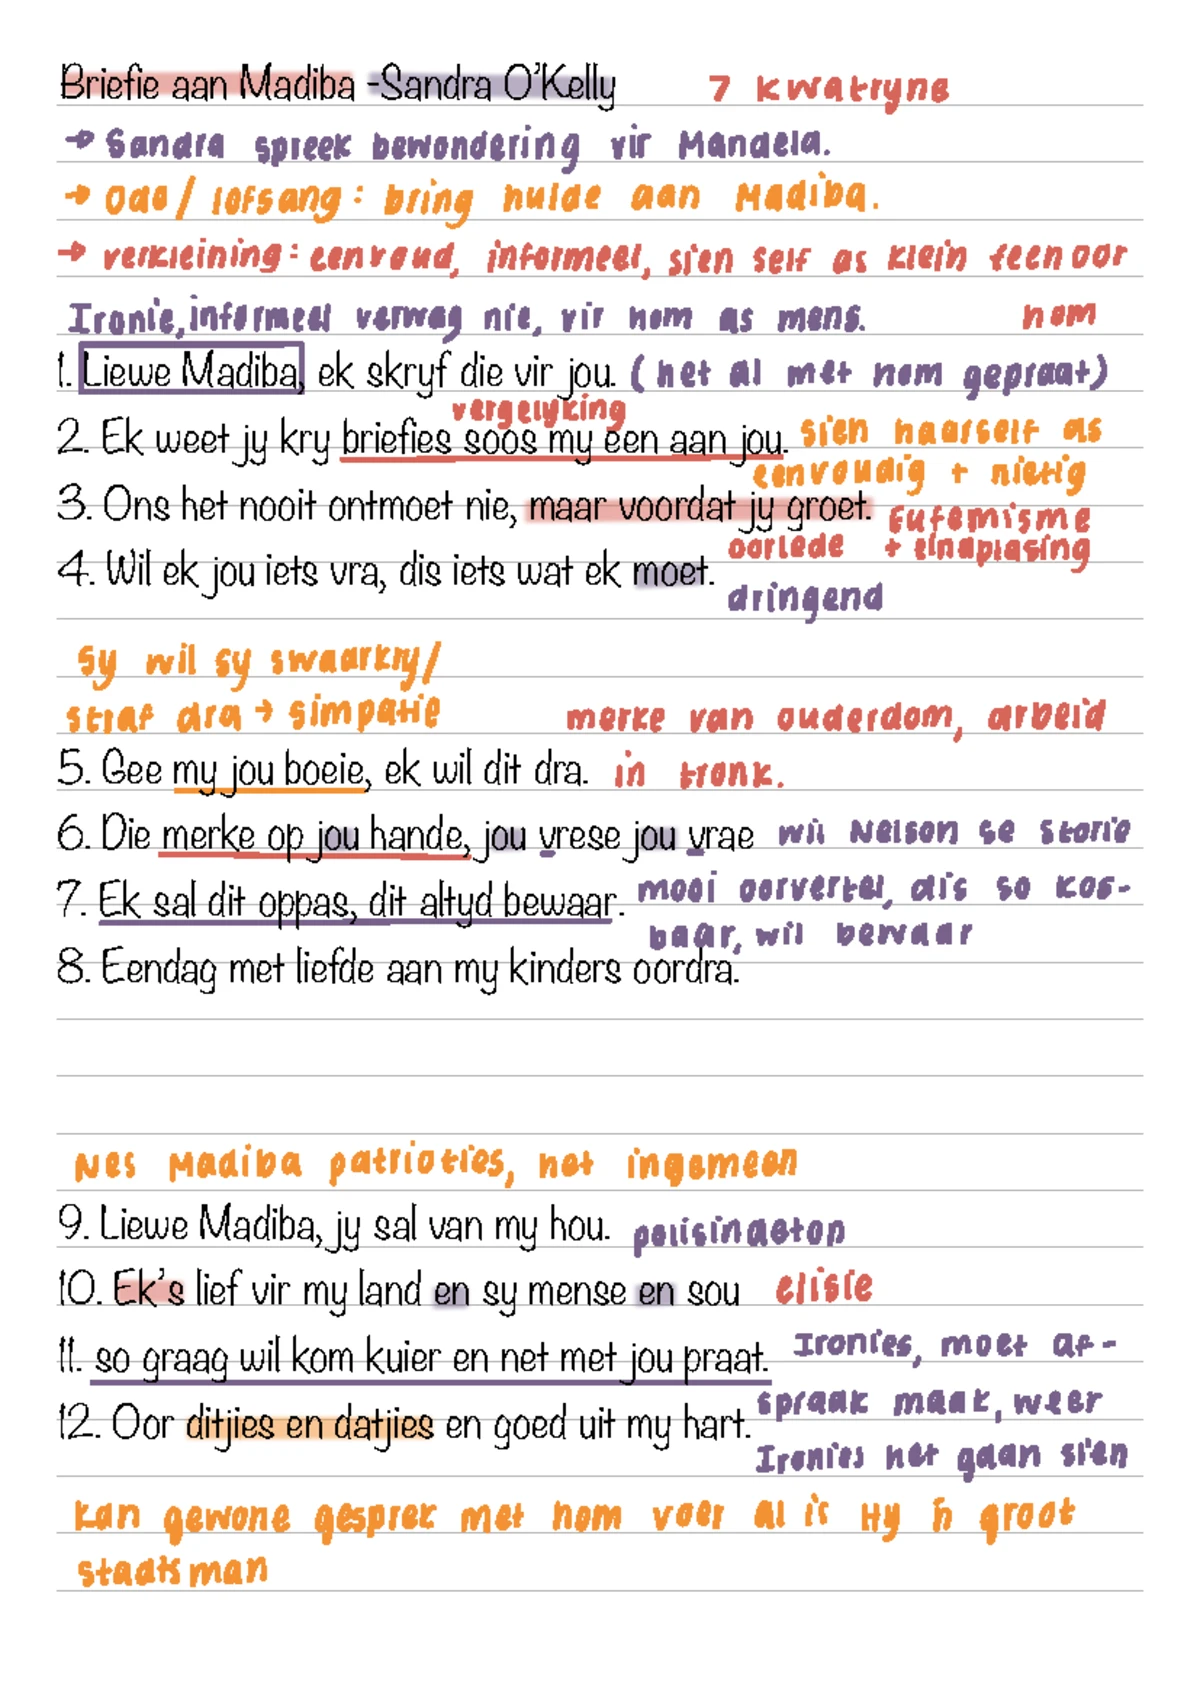 Briefie aan Madiba -Sandra O'Kelly 7 kwatryne
→ Sandra spreek bewondering vir Mandela.
→ Ode/ lofsang: bring hulde aan Madiba.
→ verkleining: eenvoud, informeel, sien self as klein teenoor
Ironie, informeel verwag nie, vir hom as mens. hom
1. Liewe Madiba, ek skryf die vir jou. (het al met hom gepraat)
vergelyking
2. Ek weet jy kry briefies soos my een aan jou. sien haarself as
eenvoudig + nietig
3. Ons het nooit ontmoet nie, maar voordat jy groet. Eufemisme
oorlede + eindplasing
4. Wil ek jou iets vra, dis iets wat ek moet.
dringend
Sy wil sy swaarkry/
straf dra → simpatie merke van ouderdom, arbeid
5. Gee my jou boeie, ek wil dit dra. in tronk.
6. Die merke op jou hande, jou vrese jou vrae wil Nelson se storie
7. Ek sal dit oppas, dit altyd bewaar. mooi oorvertel, dis so kos-
baar, wil bewaar
8. Eendag met liefde aan my kinders oordra.
Nes Madiba patrioties, net ingemeen
9. Liewe Madiba, jy sal van my hou. polisindeton
10. Ek's lief vir my land en sy mense en sou elisie
11. so graag wil kom kuier en net met jou praat. Ironies, moet af-
spraak maak, weer
12. Oor ditjies en datjies en goed uit my hart.
Ironies net gaan sien
kan gewone gesprek met hom voer al is Hy ŉ groot
staatsman